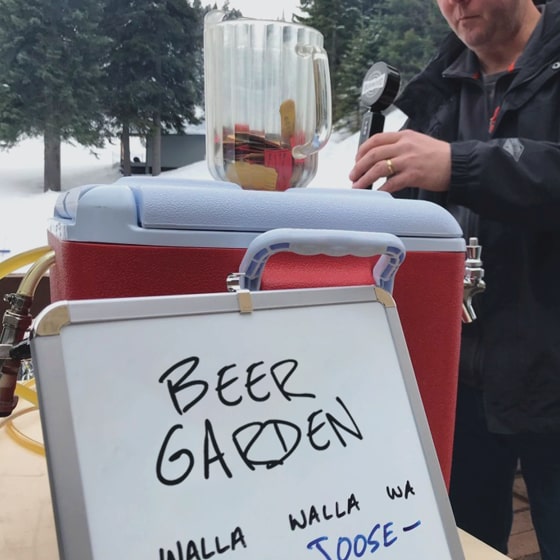 BEER
GARDEN
WALLA WALLA WA
JOOSE-